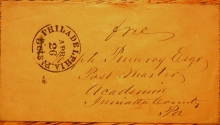 PHILADELPHIA Pa.
APR
26
free
Pinney Esqr
Post Master
Academia
Juniata County
Pa